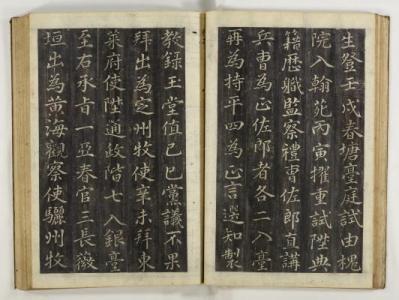 生登壬戌春塘臺庭試由槐
院入翰苑丙寅擢重試陞典
籍歷職監察禮曹佐郎直講
兵曹為正佐郎者各二入臺
再為持平四為正言選知製
教錄玉堂值己巳黨議不果
拜出為定州牧使辛未拜東
萊府使陞通政階七入銀臺
至右承旨一亞春官三長薇
垣出為黃海觀察使驪州牧